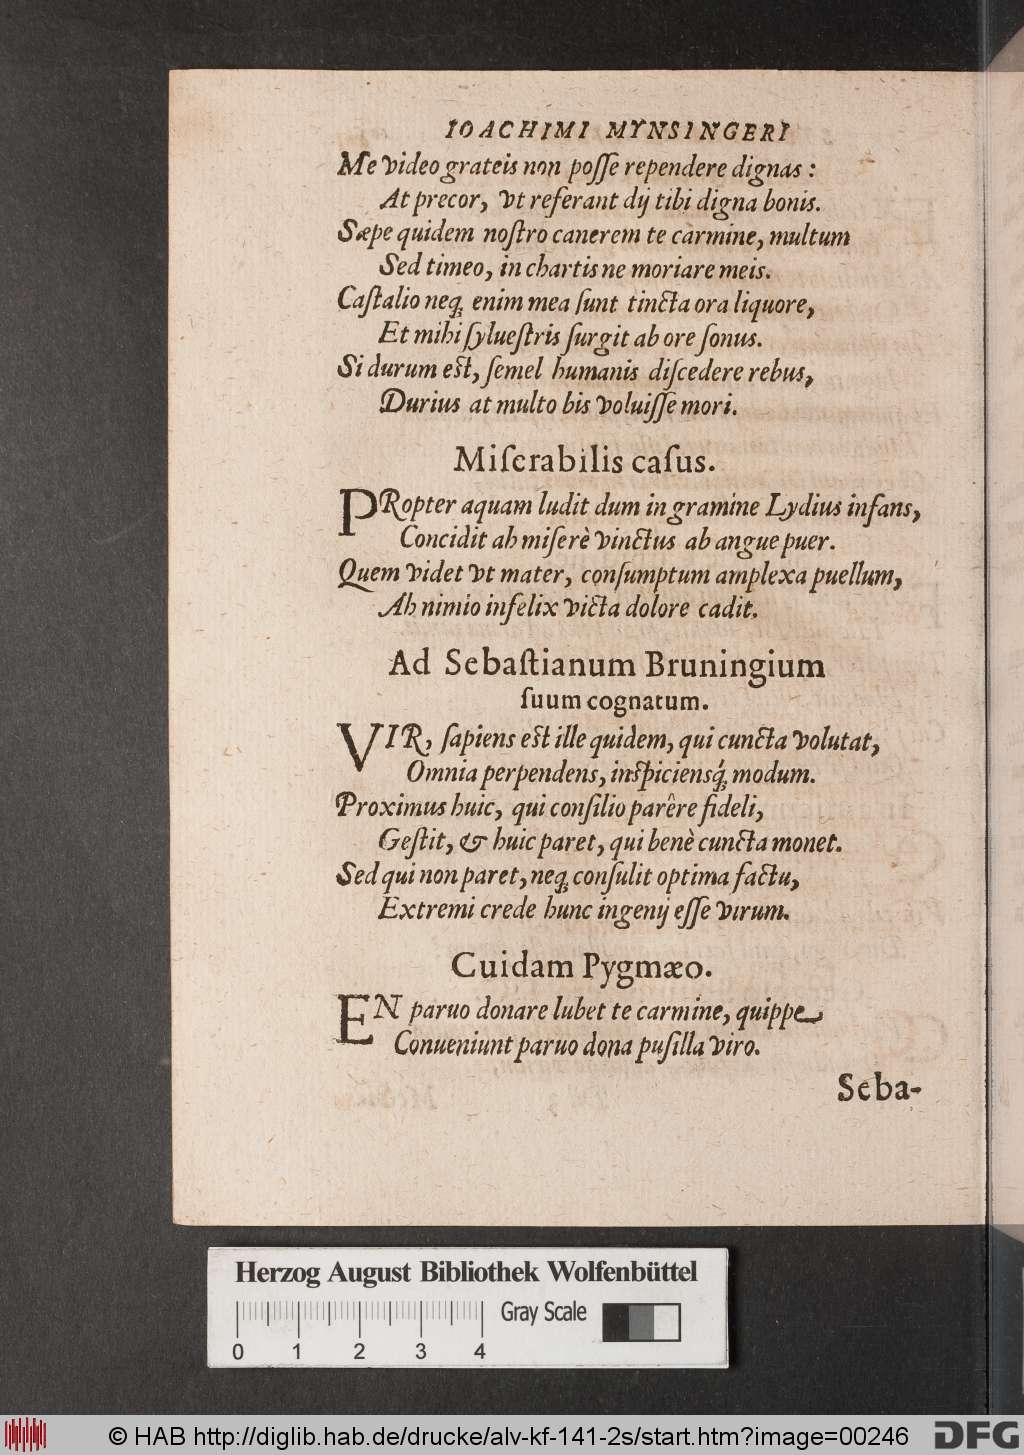 IOACHIMI MYNSINGERI
Me video grateis non poſſe rependere dignas :
At precor, vt referant dij tibi digna bonis.
Sæpe quidem noſtro canerem te carmine, multum
Sed timeo, in chartis ne moriare meis.
Caſtalio neq; enim mea ſunt tincta ora liquore,
Et mihi ſylueſtris ſurgit ab ore ſonus.
Si durum est, ſemel humanis diſcedere rebus,
Durius at multo bis voluiſſe mori.
Miſerabilis caſus.
PRopter aquam ludit dum in gramine Lydius infans,
Concidit ah miſerè vinctus ab angue puer.
Quem videt vt mater, conſumptum amplexa puellum,
Ah nimio infelix victa dolore cadit.
Ad Sebaſtianum Bruningium
ſuum cognatum.
VIR, ſapiens est ille quidem, qui cuncta volutat,
Omnia perpendens, inſpiciensq́; modum.
Proximus huic, qui conſilio parêre fideli,
Geſtit, & huic paret, qui benè cuncta monet.
Sed qui non paret, neq; conſulit optima factu,
Extremi crede hunc ingenij eſſe virum.
Cuidam Pygmæo.
EN paruo donare lubet te carmine, quippe
Conueniunt paruo dona puſilla viro.
Seba-
Herzog August Bibliothek Wolfenbüttel
Gray Scale
0 1 2 3 4
© HAB http://diglib.hab.de/drucke/alv-kf-141-2s/start.htm?image=00246
DFG